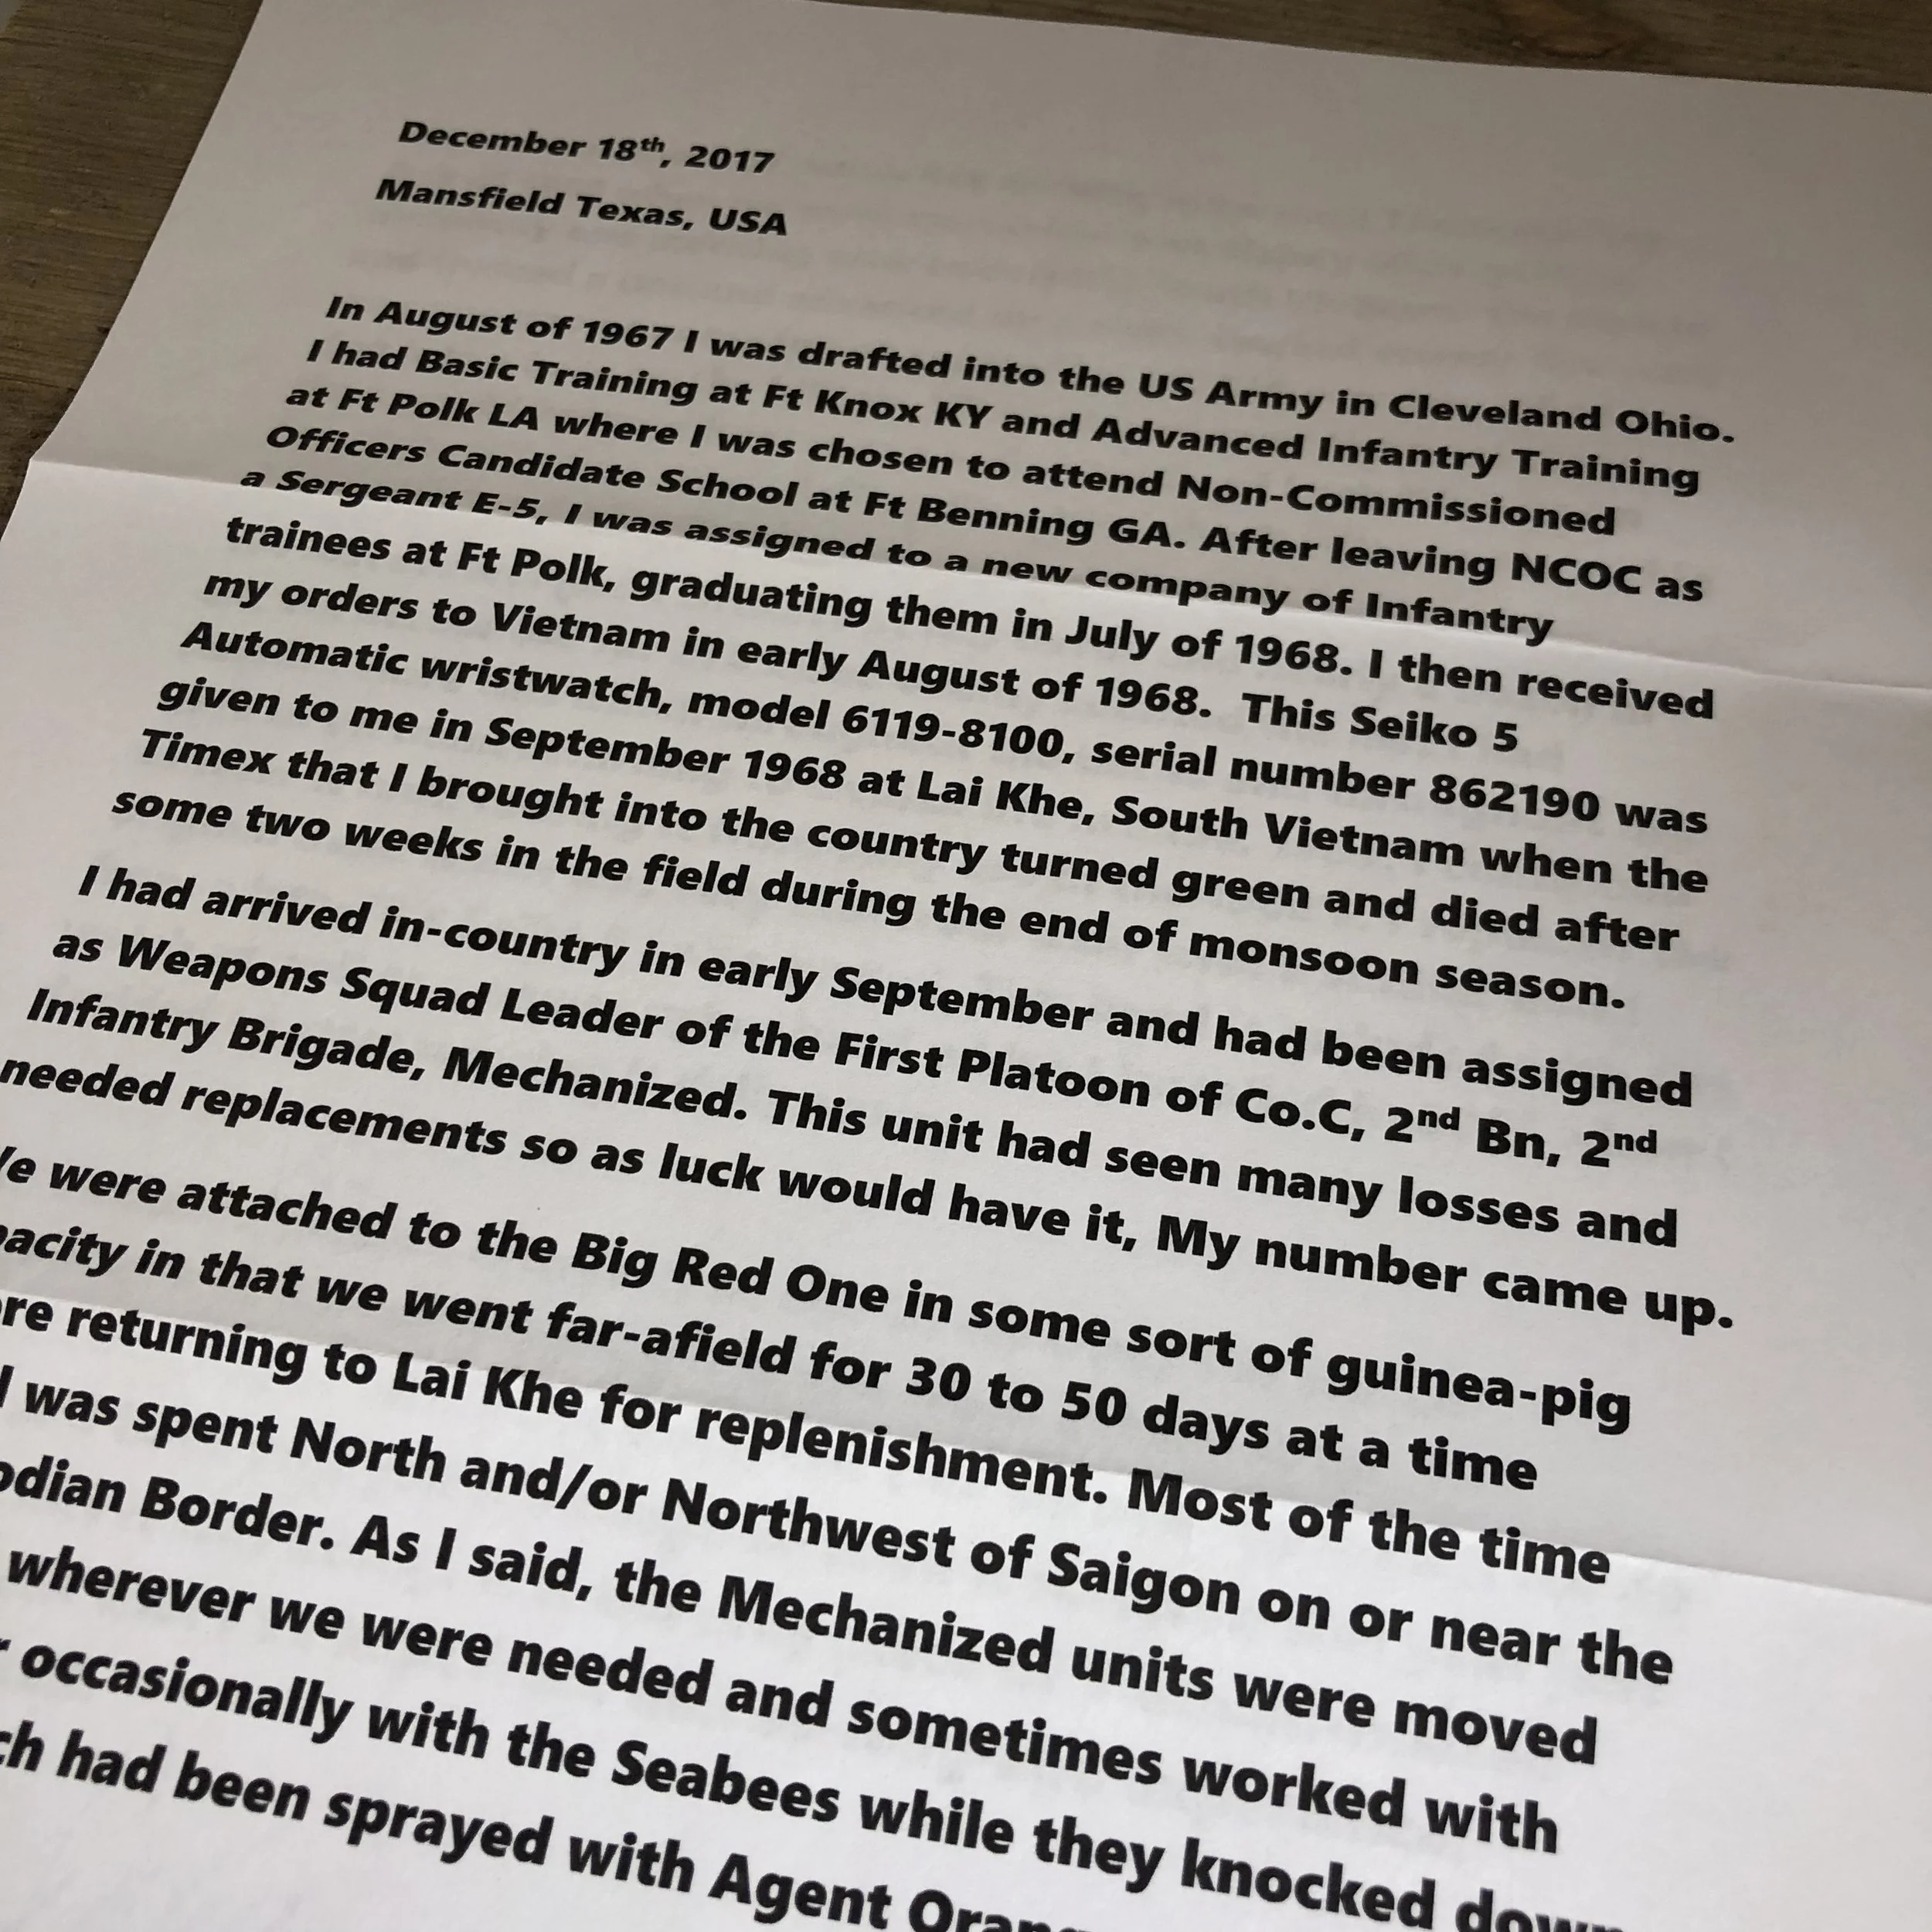 December 18th, 2017
Mansfield Texas, USA
In August of 1967 I was drafted into the US Army in Cleveland Ohio.
I had Basic Training at Ft Knox KY and Advanced Infantry Training
at Ft Polk LA where I was chosen to attend Non-Commissioned
Officers Candidate School at Ft Benning GA. After leaving NCOC as
a Sergeant E-5, I was assigned to a new company of Infantry
trainees at Ft Polk, graduating them in July of 1968. I then received
my orders to Vietnam in early August of 1968. This Seiko 5
Automatic wristwatch, model 6119-8100, serial number 862190 was
given to me in September 1968 at Lai Khe, South Vietnam when the
Timex that I brought into the country turned green and died after
some two weeks in the field during the end of monsoon season.
I had arrived in-country in early September and had been assigned
as Weapons Squad Leader of the First Platoon of Co.C, 2nd Bn, 2nd
Infantry Brigade, Mechanized. This unit had seen many losses and
needed replacements so as luck would have it, My number came up.
were attached to the Big Red One in some sort of guinea-pig
in that we went far-afield for 30 to 50 days at a time
returning to Lai Khe for replenishment. Most of the time
I was spent North and/or Northwest of Saigon on or near the
Border. As I said, the Mechanized units were moved
wherever we were needed and sometimes worked with
occasionally with the Seabees while they knocked down
had been sprayed with Agent